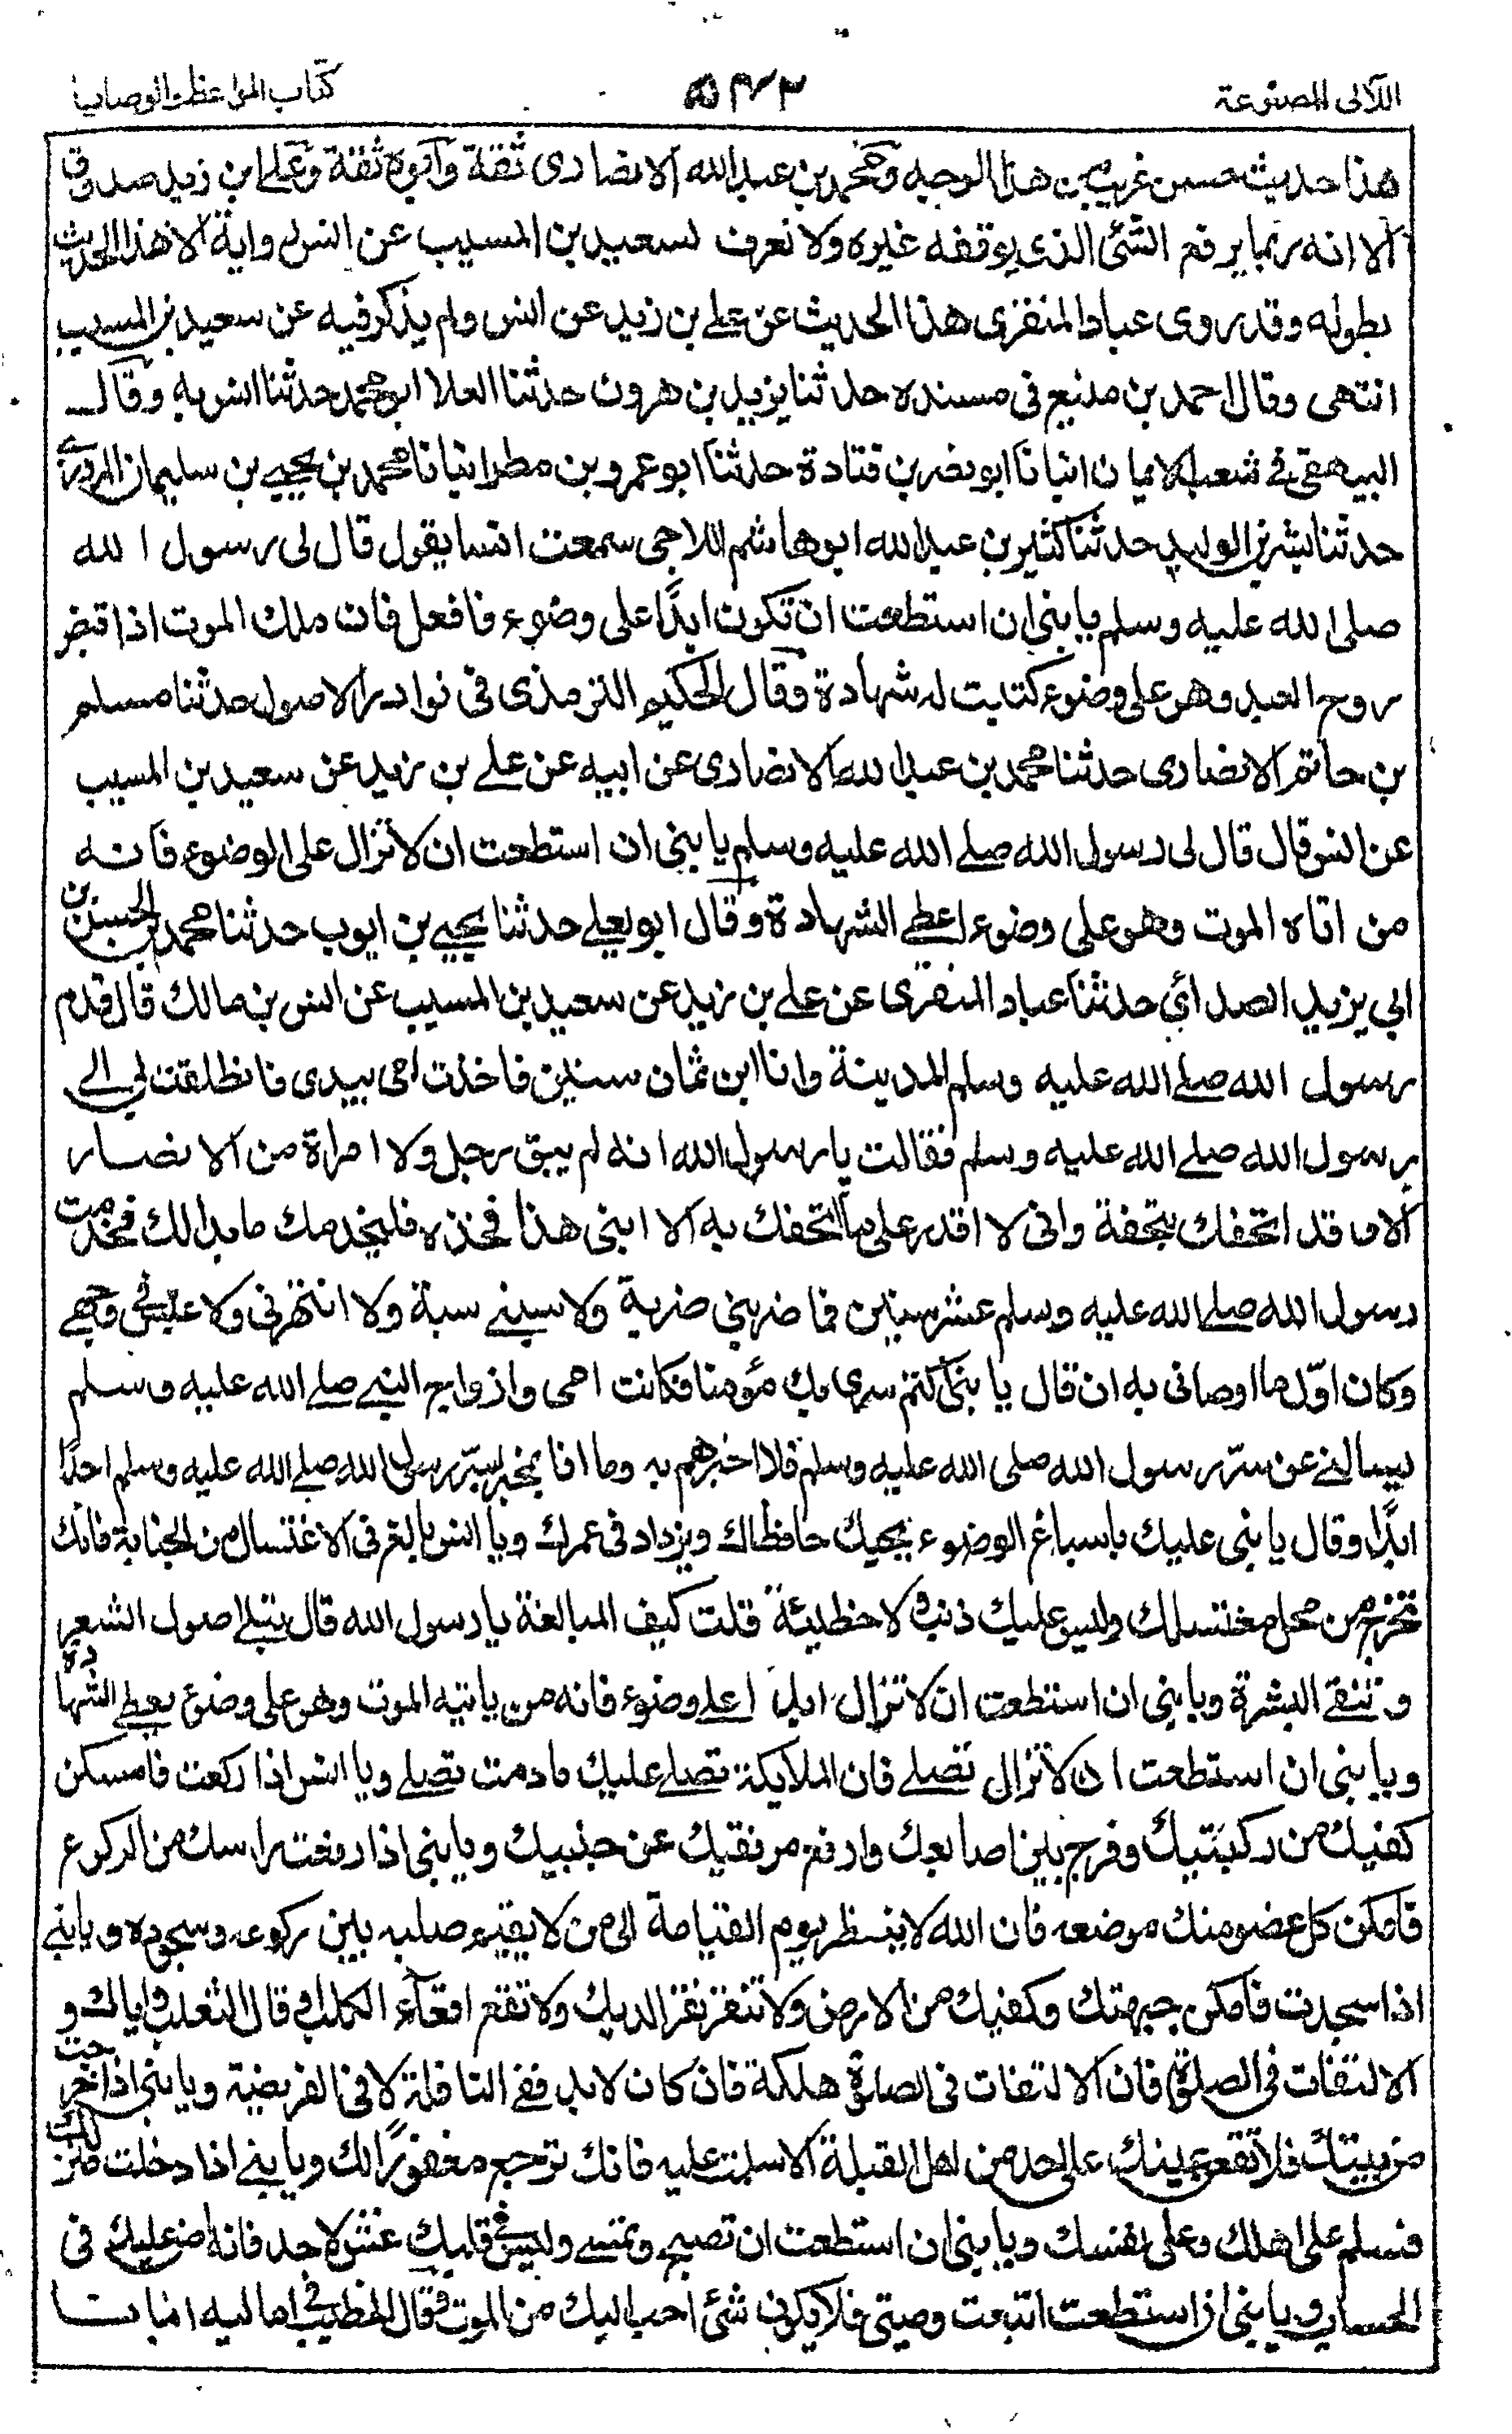 اللآلى المصنوعة
كتاب المواعظ والوصايا
هذا حديث حسن غريب من هذا الوجه ومحمد بن عبد الله الانصارى ثقة وابوه ثقة وعلى ابن زيد صدوق
الا انه ربما يرفع الشئ الذى يوقفه غيره ولا نعرف لسعيد بن المسيب عن انس رواية الا هذا الحديث
بطوله وقد روى عباد المنقرى هذا الحديث عن على بن زيد عن انس ولم يذكر فيه عن سعيد بن المسيب
انتهى وقال احمد بن منيع فى مسنده حدثنا يزيد بن هرون حدثنا العلا ابو محمد حدثنا انس به وقال
البيهقى فى شعب الايمان انبانا ابو نصر بن قتادة حدثنا ابو عمرو بن مطر انبانا محمد بن يحيى بن سليمان المروزى
حدثنا بشر بن الوليد حدثنا كثير بن عبد الله ابو هاشم اللاجى سمعت انسا يقول قال لى رسول الله
صلى الله عليه وسلم يا بنى ان استطعت ان تكون ابدًا على وضوء فافعل فان ملك الموت اذا قبض
روح العبد وهو على وضوء كتبت له شهادة وقال الحكيم الترمذى فى نوادر الاصول حدثنا مسلم
بن حاتم الانصارى حدثنا محمد بن عبد الله الانصارى عن ابيه عن على بن زيد عن سعيد بن المسيب
عن انس قال قال لى رسول الله صلى الله عليه وسلم يا بنى ان استطعت ان لا تزال على الوضوء فانه
من اتاه الموت وهو على وضوء اعطى الشهادة وقال ابو يعلى حدثنا يحيى بن ايوب حدثنا محمد بن الحسن بن
ابي يزيد الصدائي حدثنا عباد المنقرى عن على بن زيد عن سعيد بن المسيب عن انس بن مالك قال قدم
رسول الله صلى الله عليه وسلم المدينة وانا ابن ثمان سنين فاخذت امى بيدى فانطلقت بى الى
رسول الله صلى الله عليه وسلم فقالت يا رسول الله انه لم يبق رجل ولا امراة من الانصار
الا وقد اتحفك بتحفة وانى لا اقدر على ما اتحفك به الا ابنى هذا فخذه فليخدمك ما بدا لك فخدمت
رسول الله صلى الله عليه وسلم عشر سنين فما ضربنى ضربة ولا سبنى سبة ولا انتهرنى ولا عبس فى وجهى
وكان اوّل ما اوصانى به ان قال يا بنى اكتم سرى تك مؤمنا فكانت امى وازواج النبى صلى الله عليه وسلم
يسالننى عن سرّ رسول الله صلى الله عليه وسلم فلا اخبرهم به وما انا بمخبر بسرّ رسول الله صلى الله عليه وسلم احدًا
ابدًا وقال يا بنى عليك باسباغ الوضوء يحبك حافظاك ويزداد فى عمرك ويا انس بالغ فى الاغتسال من الجنابة فانك
تخرج من محل مغتسلك وليس عليك ذنب ولا خطيئة قلت كيف المبالغة يا رسول الله قال تبلى اصول الشعر
وتنقى البشرة ويا بنى ان استطعت ان لا تزال ابدا على وضوء فانه من ياتيه الموت وهو على وضوء يعطى الشهادة
ويا بنى ان استطعت ان لا تزال تصلى فان الملايكة تصلى عليك مادمت تصلى ويا انس اذا ركعت فامسكن
كفيك من ركبتيك وفرج بين اصابعك وارفع مرفقيك عن جنبيك ويا بنى اذا رفعت راسك من الركوع
فامكن كل عضو منك موضعه فان الله لا ينظر يوم القيامة الى من لا يقيم صلبه بين ركوعه وسجوده ويا بنى
اذا سجدت فامكن جبهتك وكفيك من الارض ولا تنقر نقر الديك ولا تقع اقعآء الكلب او قال الثعلب واياك و
الالتفات فى الصلوة فان الالتفات فى الصلوة هلكة فان كان لابد ففى النافلة لا فى الفريضة ويا بنى اذا خرجت
من بيتك فلا تقع عينك على احد من اهل القبلة الا سلمت عليه فانك ترجع مغفورًا لك ويا بنى اذا دخلت منزلك
فسلم على اهلك وعلى نفسك ويا بنى ان استطعت ان تصبح وتمسى وليس فى قلبك غش لاحد فانه اهون عليك فى
الحساب ويا بنى ان استطعت اتبعت وصيتى فلا يكون شئ احب اليك من الموت وقال الخطيب فى اماليه انبانا